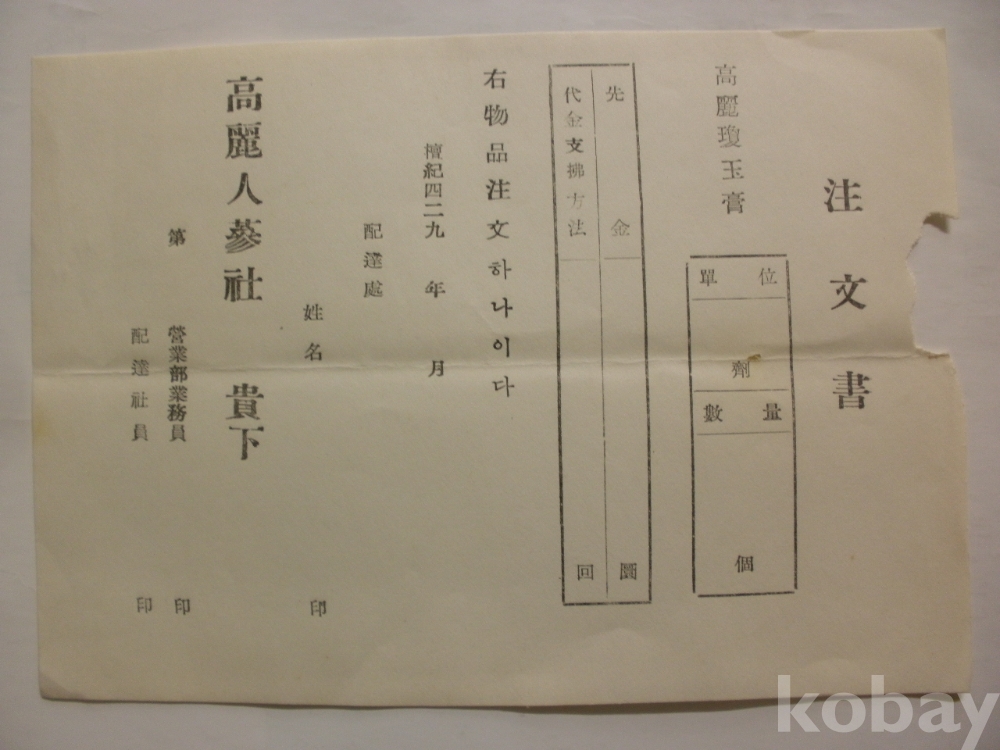 注文書
高麗瓊玉膏
單位
劑
數量
個
先金
圜
代金支拂方法
回
右物品注文하나이다
檀紀四二九 年 月
配達處
姓名 印
高麗人蔘社 貴下
第 營業部業務員 印
配達社員 印
kobay